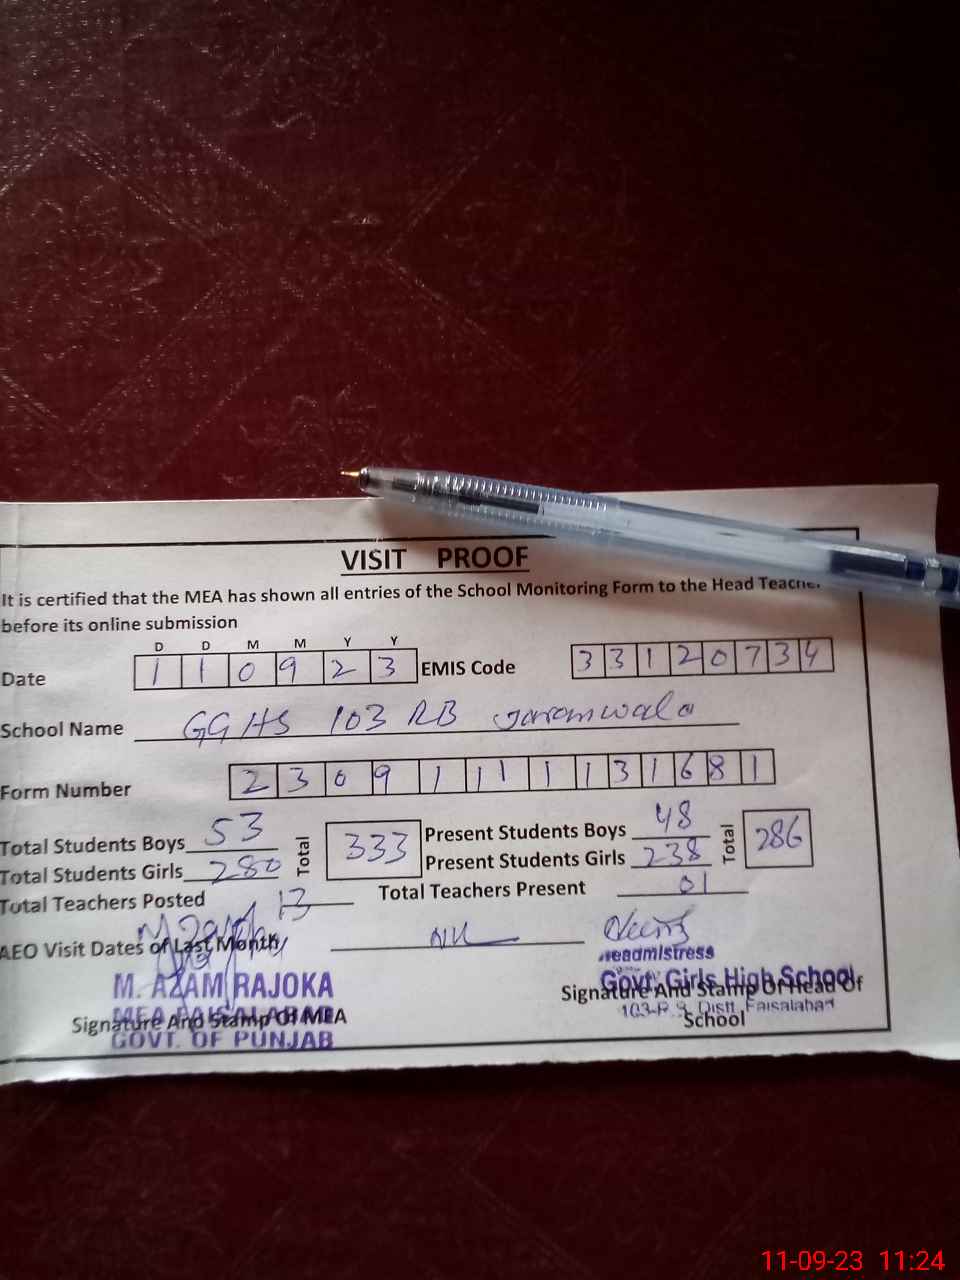 VISIT PROOF
It is certified that the MEA has shown all entries of the School Monitoring Form to the Head Teacher
before its online submission
D D M M Y Y
Date 1 1 0 9 2 3 EMIS Code 3 3 1 2 0 7 3 4
School Name GGHS 103 RB Jaranwala
Form Number 2 3 0 9 1 11 1 1 3 1 6 8 1
Total Students Boys 53 Total 333 Present Students Boys 48 Total 286
Total Students Girls 280 Present Students Girls 238
Total Teachers Posted 13 Total Teachers Present 01
AEO Visit Dates of Last Month
Headmistress
M. AZAM RAJOKA Govt. Girls High School
MEA FAISALABAD 103-R.B. Distt. Faisalabad
Signature And Stamp Of MEA Signature And Stamp Of Head Of School
GOVT. OF PUNJAB
11-09-23 11:24